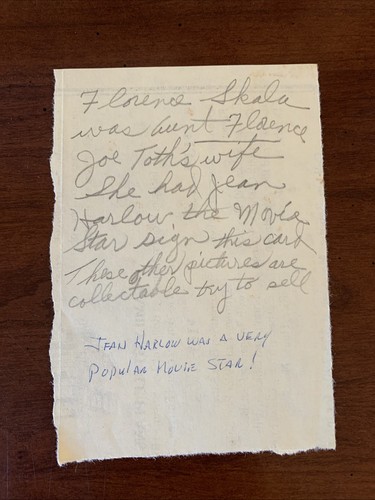 Florence Skala
was aunt Florence
Joe Toth's wife
She had Jean
Harlow the Movie
Star sign this card
These other pictures are
collectable try to sell
JEAN HARLOW WAS A VERY
POPULAR MOVIE STAR!